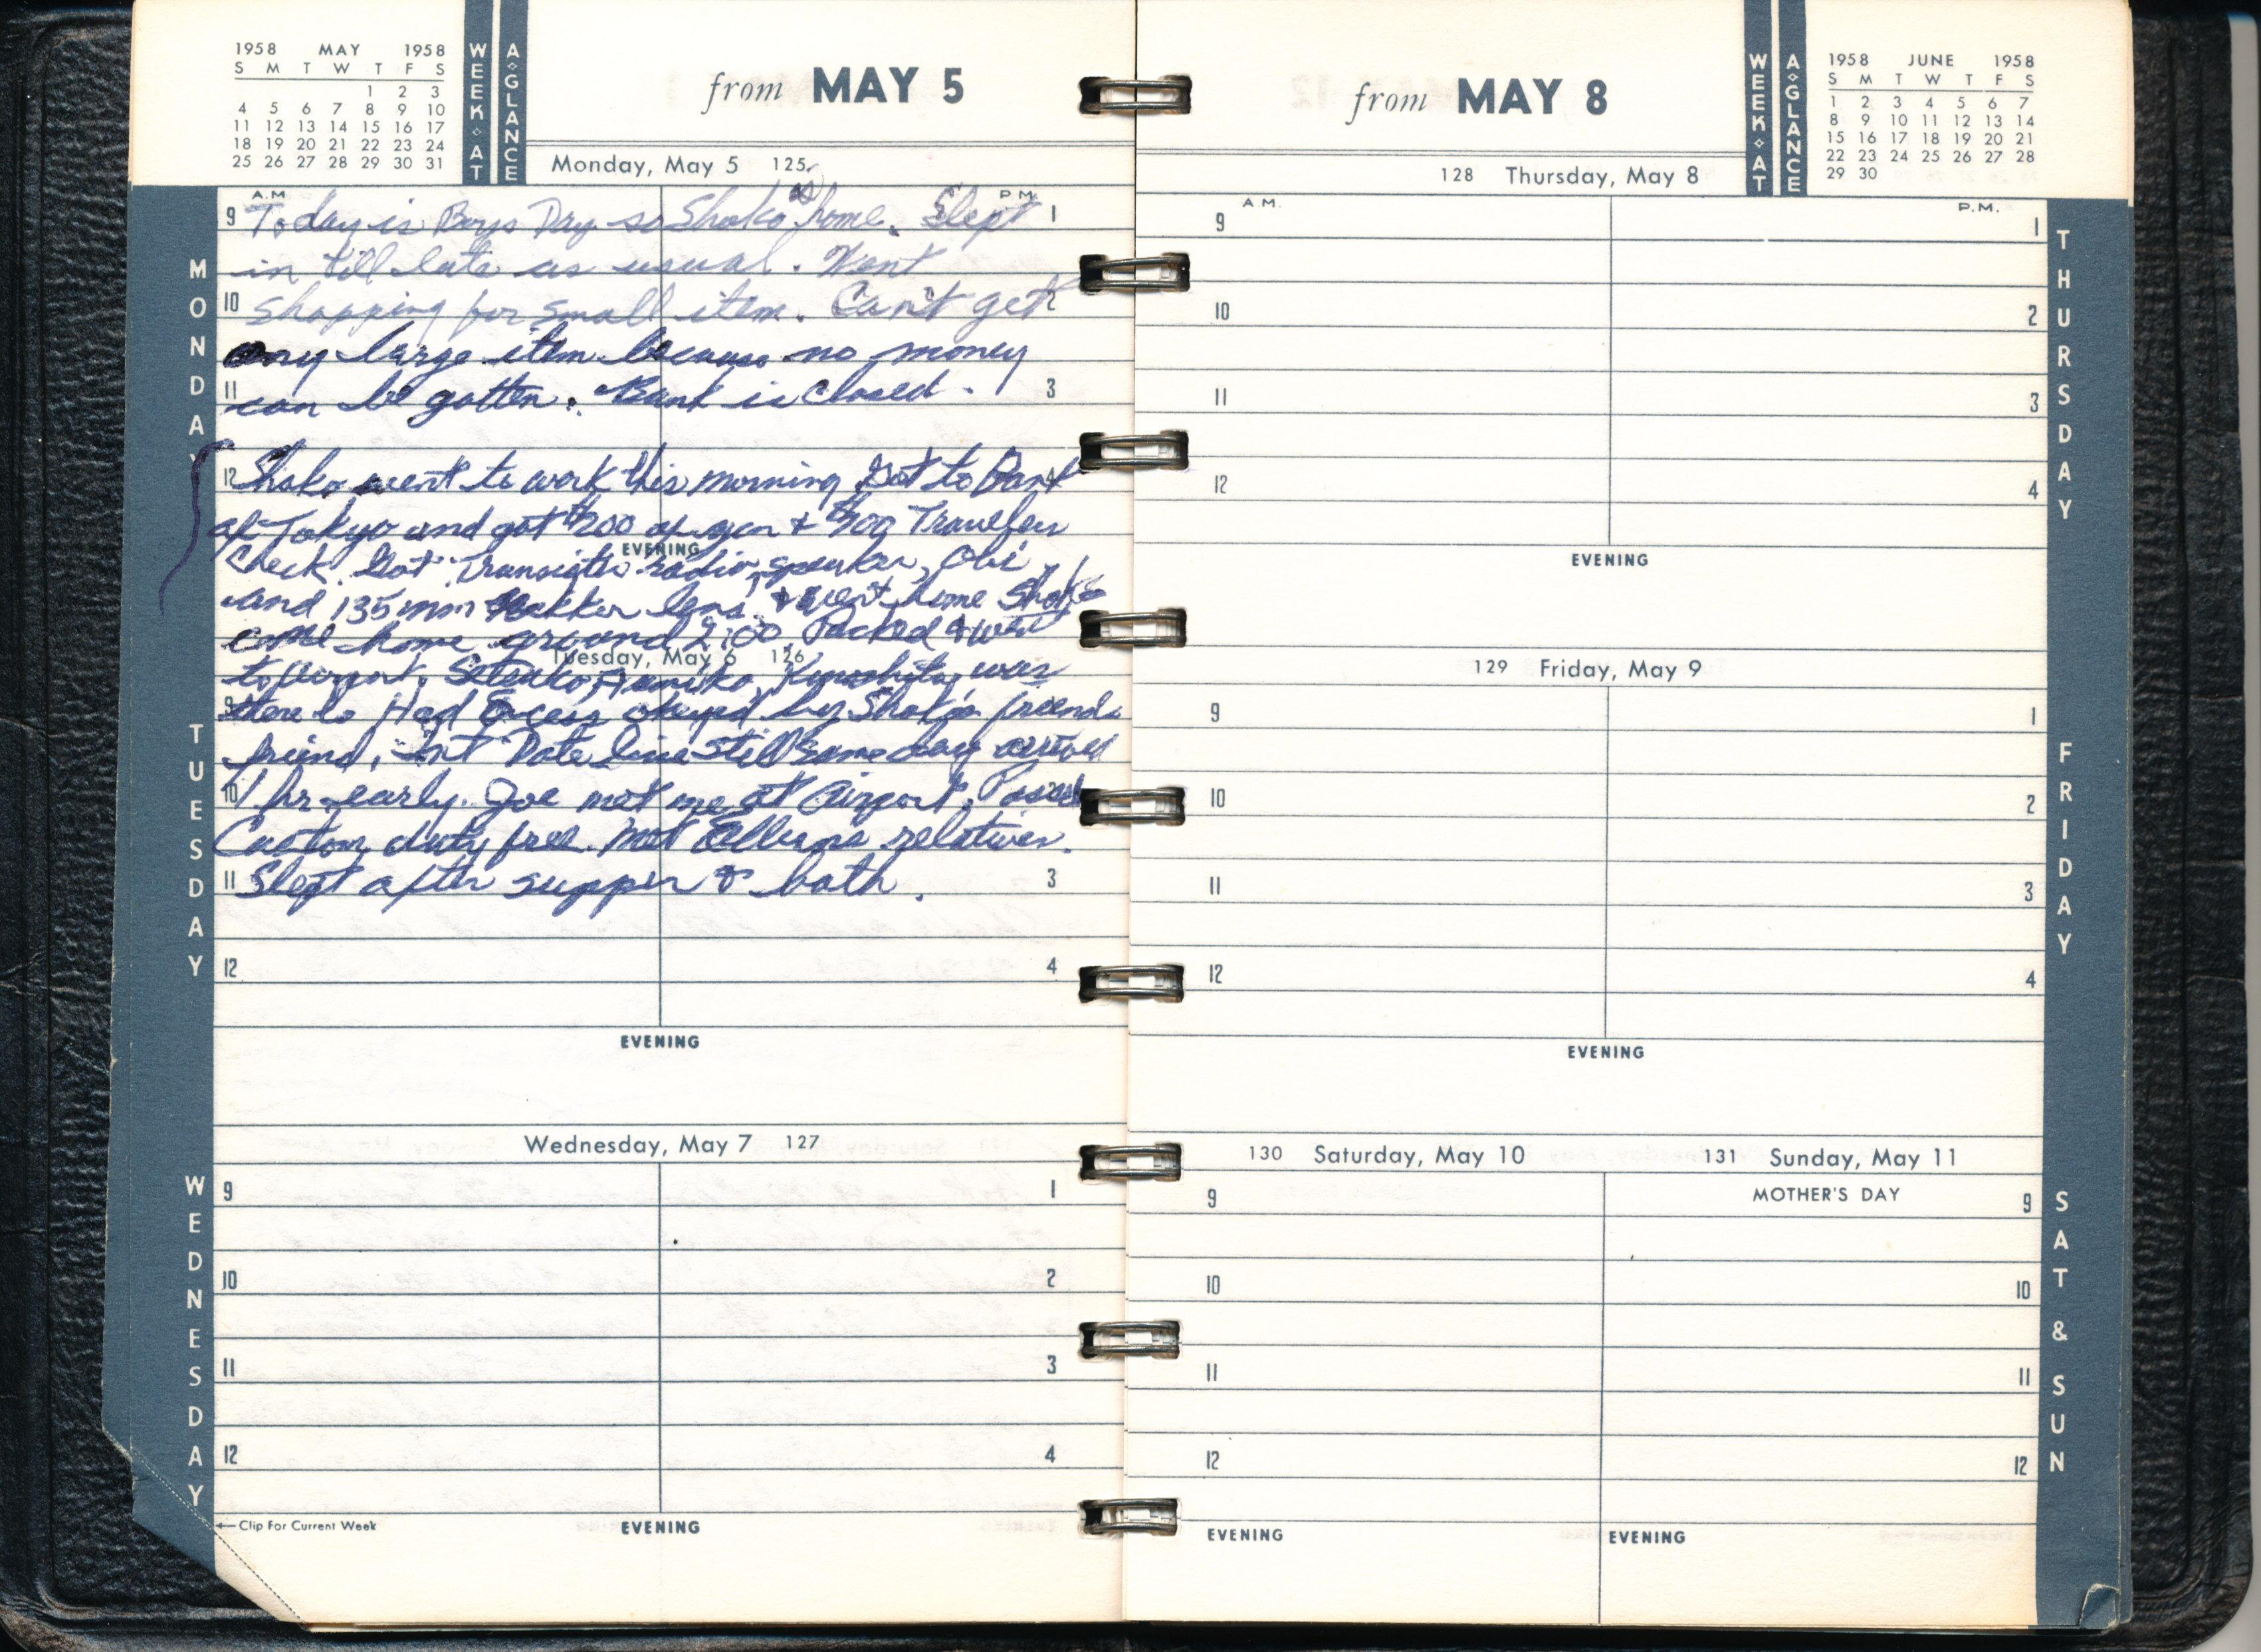 1958 MAY 1958
S M T W T F S
1 2 3
4 5 6 7 8 9 10
11 12 13 14 15 16 17
18 19 20 21 22 23 24
25 26 27 28 29 30 31
WEEK AT A GLANCE
from MAY 5
Monday, May 5 125
MONDAY
A.M. P.M.
9 1
Today is Boys Day so Shoko is home. Slept
in till late as usual. Went
10 2
shopping for small item. Can't get
any large item because no money
11 3
can be gotten. Bank is closed.
12 4
Shoko went to work this morning Got to Bank
of Tokyo and got $200 of yen + $700 Travelers
EVENING
Check. Got Transistor radio, speaker, Obi,
and 135 mm lens. + went home Shoko
come home around 2:00 Packed & went
Tuesday, May 6 126
to airport. Setsuko, Fumiko, Kinoshita, was
TUESDAY
9
there to Had Excess okayed by Shoko's friends
friend, Int Date line still same day arrived
10
1 hr early. Joe met me at Airport. Passed
Custom duty free. Met relatives.
11 3
Slept after supper & bath.
12 4
EVENING
Wednesday, May 7 127
WEDNESDAY
9 1
10 2
11 3
12 4
← Clip For Current Week
EVENING
from MAY 8
WEEK AT A GLANCE
1958 JUNE 1958
S M T W T F S
1 2 3 4 5 6 7
8 9 10 11 12 13 14
15 16 17 18 19 20 21
22 23 24 25 26 27 28
29 30
128 Thursday, May 8
THURSDAY
A.M. P.M.
9 1
10 2
11 3
12 4
EVENING
129 Friday, May 9
FRIDAY
9 1
10 2
11 3
12 4
EVENING
130 Saturday, May 10 131 Sunday, May 11
MOTHER'S DAY
SAT & SUN
9 9
10 10
11 11
12 12
EVENING EVENING